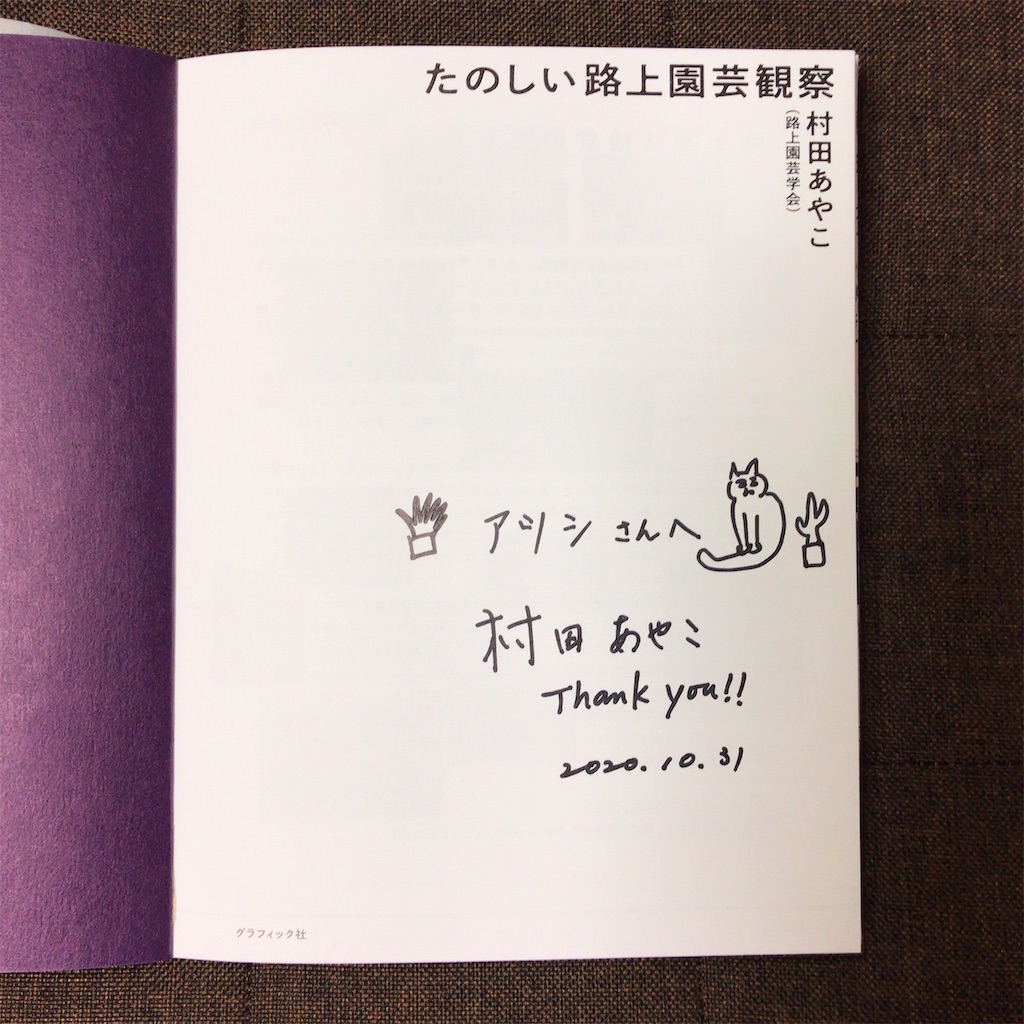 たのしい路上園芸観察
村田あやこ
(路上園芸学会)
アツシさんへ
村田あやこ
Thank you!!
2020.10.31
グラフィック社